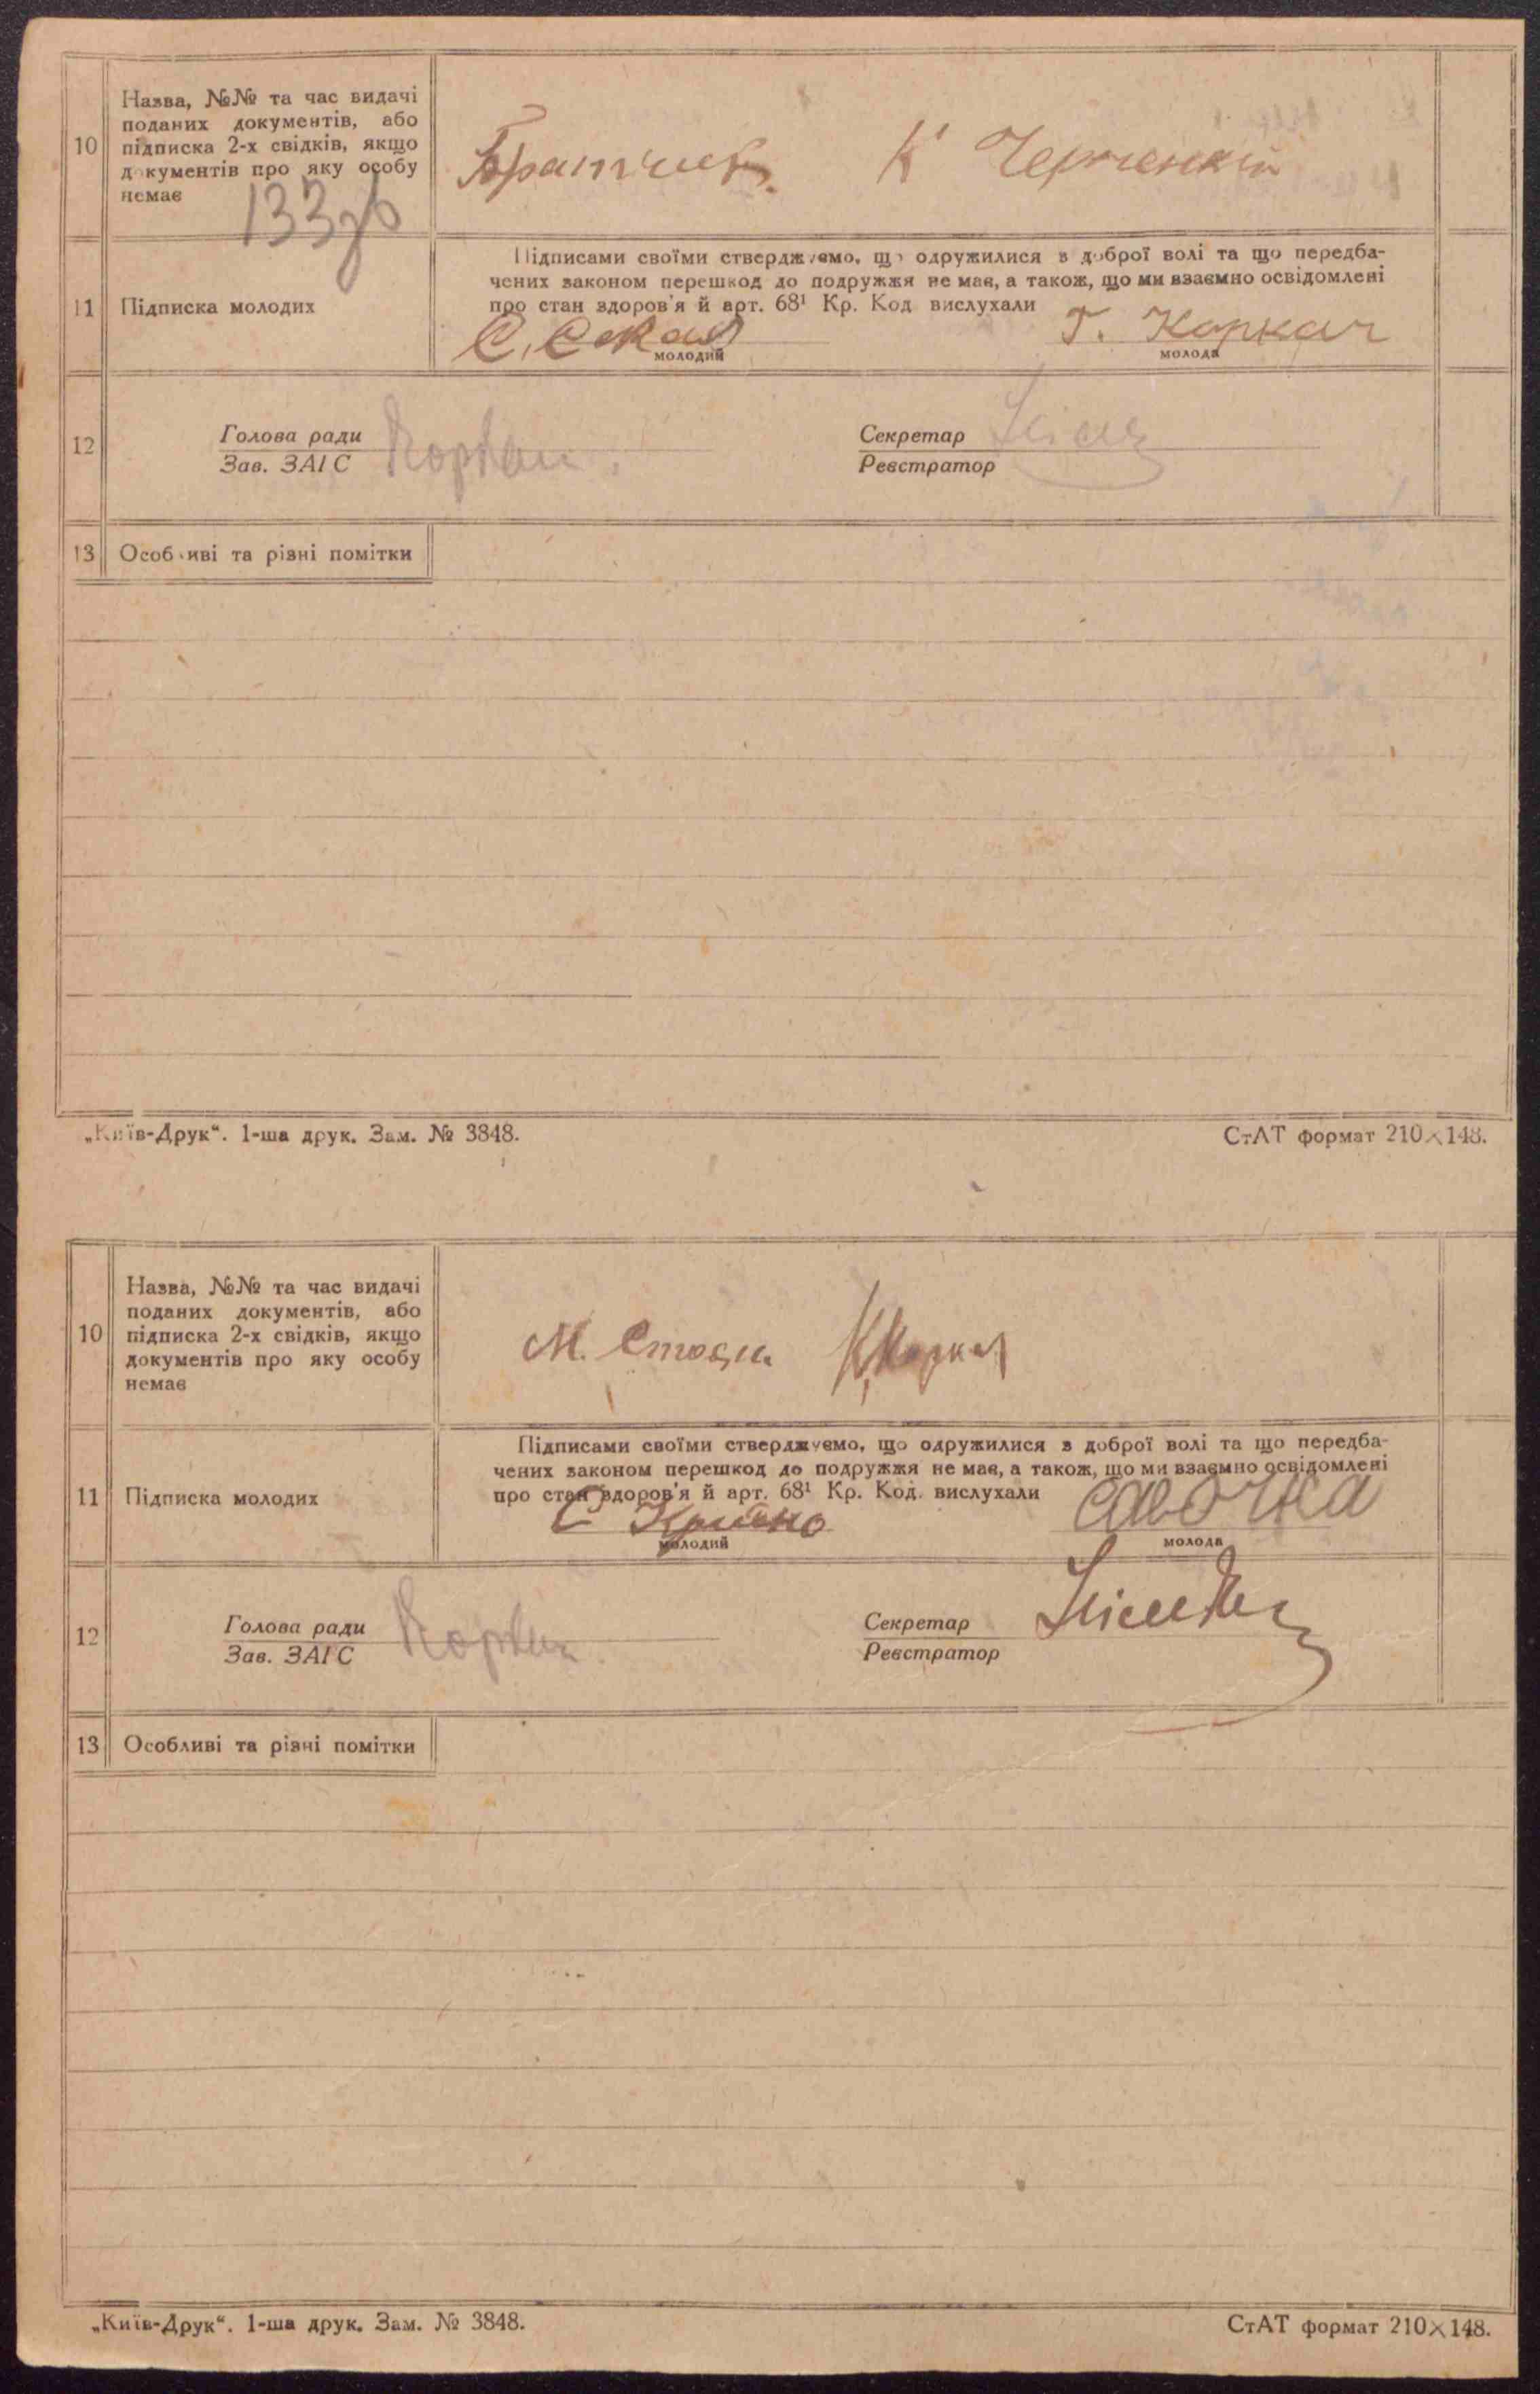 10
Назва, №№ та час видачі
поданих документів, або
підписка 2-х свідків, якщо
д кументів про яку особу
немає
133зв
К Черненкій
11
Підписка молодих
Підписами своїми стверджуємо, що одружилися з доброї волі та що передба-
чених законом перешкод до подружжя не має, а також, що ми взаємно освідомлені
про стан здоров'я й арт. 68¹ Кр. Код вислухали
Г. Коркач
молодий
молода
12
Голова ради
Зав. ЗАГС
Секретар
Реєстратор
13
Особ иві та різні помітки
„Київ-Друк“. 1-ша друк. Зам. № 3848.
СтАТ формат 210×148.
10
Назва, №№ та час видачі
поданих документів, або
підписка 2-х свідків, якщо
документів про яку особу
немає
М.
11
Підписка молодих
Підписами своїми стверджуємо, що одружилися з доброї волі та що передба-
чених законом перешкод до подружжя не має, а також, що ми взаємно освідомлені
про стан здоров'я й арт. 68¹ Кр. Код. вислухали
С
Савочка
молодий
молода
12
Голова ради
Зав. ЗАГС
Секретар
Реєстратор
13
Особливі та різні помітки
„Київ-Друк“. 1-ша друк. Зам. № 3848.
СтАТ формат 210×148.